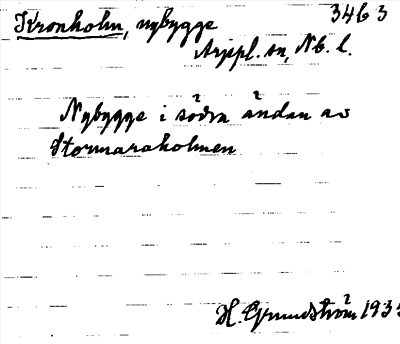 Kronholm, nybygge 3463
Arjepl. sn, Nb. l.
Nybygge i södra ändan av
Stormaraholmen
H. Grundström 1935